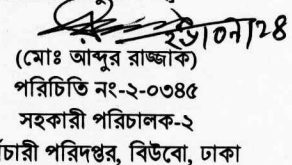 ২৪/০৭/২৪
(মোঃ আব্দুর রাজ্জাক)
পরিচিতি নং-২-০৩৪৫
সহকারী পরিচালক-২
চারী পরিদপ্তর, বিউবো, ঢাকা